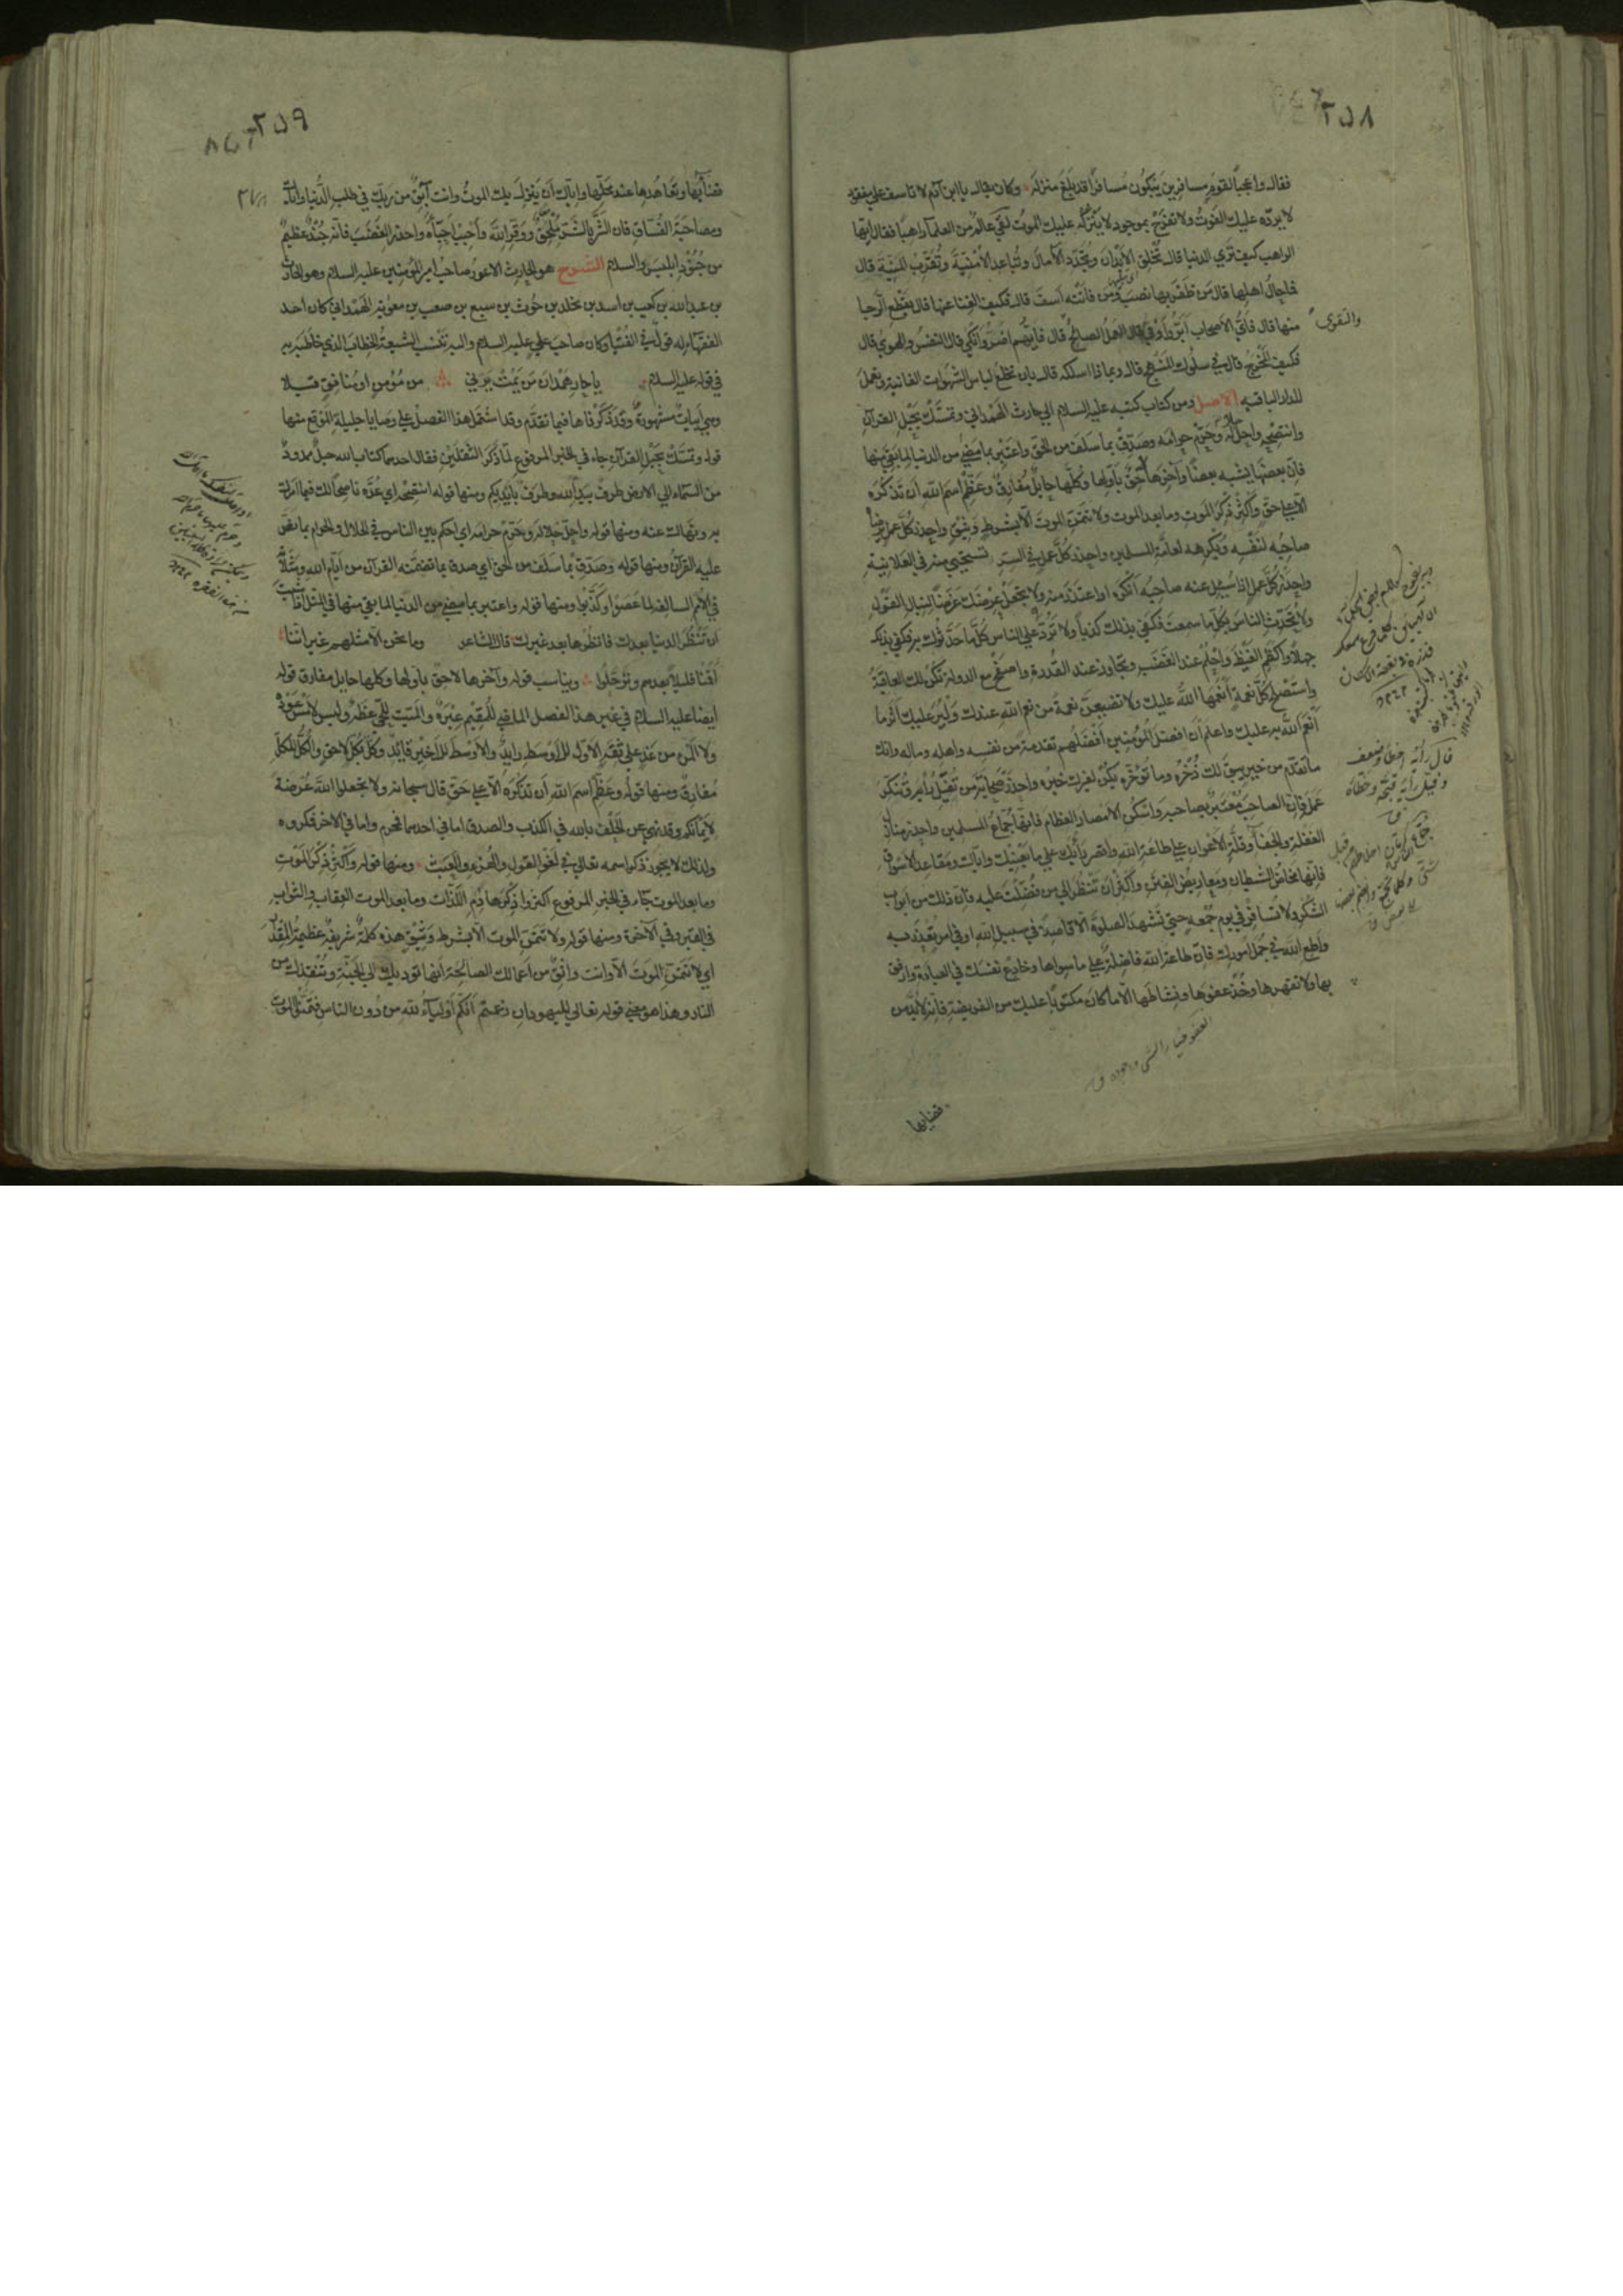 ٢٥٨
فقال واعجباً لقوم مسافرين يَبكُون مُسافرًا قد بَلَغ منزله وكان يقال يا ابن آدم لا تاسف على مفقود
لا يردّه عليك الفَوتُ ولا تفرح بموجود لا يتركه عليك الموتُ لقي عالمٌ من العلماء راهباً فقال ايها
الراهب كيف تري الدنيا قال تُخلِق الأبدَان وتُجدّد الآمال وتُباعد الأمنيّة وتُقرّب المنيّة قال
فما حال اهلها قال من ظفر بها نصب ومن فاتته اسف قال فكيف الغنا عنها قال بقطع الرجا
منها قال فايّ الاصحاب ابرّ واوفي قال العمل الصالح قال فايّهم اضرّ وانكي قال النفس والهوي قال
والتقوى
فكيف المَخرج قال في سلوك المنهج قال وبماذا اسلكه قال بان تخلع لباس الشهوات الفانية وتعمل
للدار الباقيه الاصل ومن كتاب كتبه عليه السلام الي حارث الهمداني وتمسّك بحبل القرآن
وانتصحه واحلّ حلاله وحرّم حرامه وصدّق بما سلف من الحق واعتبر بما مضي من الدنيا لما بقي منها
فان بعضها يشبه بعضًا وآخرها لاحق باولها وكلّها حايل مفارق وعظّم اسم الله ان تذكره
الا علي حق واكثر ذكر الموت وما بعد الموت ولا تتمنّ الموت الا بشرط وثيق واحذر كل عمل يرضاه
صاحبه لنفسه ويكرهه لعامة المسلمين واحذر كل عمل في السرّ تستحيي منه في العلانية
واحذر كل عمل اذا سُئل عنه صاحبه انكره او اعتذر منه ولا تجعل عرضك غرضًا لنبال القول
ولا تحدّث الناس بكل ما سمعت فكفي بذلك كذبًا ولا تردّ علي الناس كل ما حدّثوك به فكفي بذلك
جهلًا واكظم الغيظ واحلم عند الغضب وتجاوز عند القدرة واصفح مع الدولة تكن لك العاقبة
واستصلح كل نعمة انعمها الله عليك ولا تضيعنّ نعمة من نعم الله عندك ولير عليك اثر ما
انعم الله به عليك واعلم ان افضل المؤمنين افضلهم تقدمة من نفسه واهله وماله وانك
ما تقدم من خير يبق لك ذخره وما تؤخره يكن لغيرك خيره واحذر صحابة من تفيل رأيه وتنكر
عمله فان الصاحب معتبر بصاحبه واسكن الامصار العظام فانها جماع المسلمين واحذر منازل
الغفلة والجفا وقلّة الاعوان علي طاعة الله واقصر رأيك علي ما يعنيك واياك ومقاعد الاسواق
فانها محاضر الشيطان ومعاريض الفتن واكثر ان تنظر الي من فضّلت عليه فان ذلك من ابواب
الشكر ولا تسافر في يوم جمعه حتي تشهد الصلوة الا قاصدًا في سبيل الله او في امر تعذر به
واطع الله في جمل امورك فان طاعة الله فاضلة علي ما سواها وخادع نفسك في العبادة وارفق
بها ولا تقهرها وخذ عفوها ونشاطها الا ما كان مكتوبًا عليك من الفريضة فانه لا بد من
قضايها
٢٥٩
قضائها وتعاهدها عند محلّها واياك ان ينزل بك الموت وانت آبق من ربك في طلب الدنيا واياك
ومصاحبة الفسّاق فان الشر بالشر ملحق ووقّر الله واحبب احبّاءه واحذر الغضب فانه جند عظيم
من جنود ابليس والسلام الشرح هو الحارث الاعور صاحب امير المؤمنين عليه السلام وهو الحارث
بن عبد الله بن كعب بن اسد بن مخلد بن حوث بن سبيع بن صعب بن معوية الهمداني كان احد
الفقهاء له قول في الفتيا وكان صاحب علي عليه السلام واليه تنسب الشيعة الخطاب الذي خاطبه به
في قوله عليه السلام يا حار همدان من يمت يرني من مؤمن او منافق قبلا
وهي ابيات مشهورة وقد ذكرناها فيما تقدّم وقد اشتمل هذا الفصل علي وصايا جليلة الموقع منها
قوله وتمسّك بحبل القرآن جاء في الخبر المرفوع لمّا ذكر الثقلين فقال احدهما كتاب الله حبل ممدود
من السماء الي الارض طرف بيد الله وطرف بايديكم ومنها قوله انتصحه اي عدّه ناصحًا لك فيما امرك
به ونهاك عنه ومنها قوله واحلّ حلاله وحرّم حرامه اي احكم بين الناس في الحلال والحرام بما نصّ
عليه القرآن ومنها قوله وصدّق بما سلف من الحق اي صدق بما تضمّنه القرآن من ايام الله ومثلاته
في الامم السالفة لما عصوا وكذّبوا ومنها قوله واعتبر بما مضي من الدنيا لما بقي منها في المثل اذا شئت
ان تنظر الدنيا بعدك فانظرها بعد غيرك قال الشاعر وما نحن الا مثلهم غير اننا
اقمنا قليلًا بعدهم وترحّلوا ويناسب قوله وآخرها لاحق باولها وكلها حايل مفارق قوله
ايضا عليه السلام في غير هذا الفصل الماضي للمقيم عبرة والميت للحي عظة وليس لامس عودة
ولا المرء من غد علي ثقة الاول للاوسط رايد والاوسط للاخير قايد وكل بكل لاحق والكل للكل
مفارق ومنها قوله وعظّم اسم الله ان تذكره الا علي حق قال سبحانه ولا تجعلوا الله عرضة
لايمانكم وقد نهي عن الحلف بالله في الكذب والصدق اما في احدهما فمحرم واما في الاخر فمكروه
ولذلك لا يجوز ذكر اسمه تعالي في لغو القول والهزء والعبث ومنها قوله واكثر ذكر الموت
وما بعد الموت جاء في الخبر المرفوع اكثروا ذكر هاذم اللذات وما بعد الموت العقاب والثواب
في القبر وفي الآخرة ومنها قوله ولا تتمنّ الموت الا بشرط وثيق هذه كلمة شريفة عظيمة القدر
اي لا تتمنّ الموت الا وانت واثق من اعمالك الصالحة انها تؤديك الي الجنة وتنقذك من
النار وهذا هو معني قوله تعالي لليهود ان زعمتم انكم اولياء لله من دون الناس فتمنّوا الموت